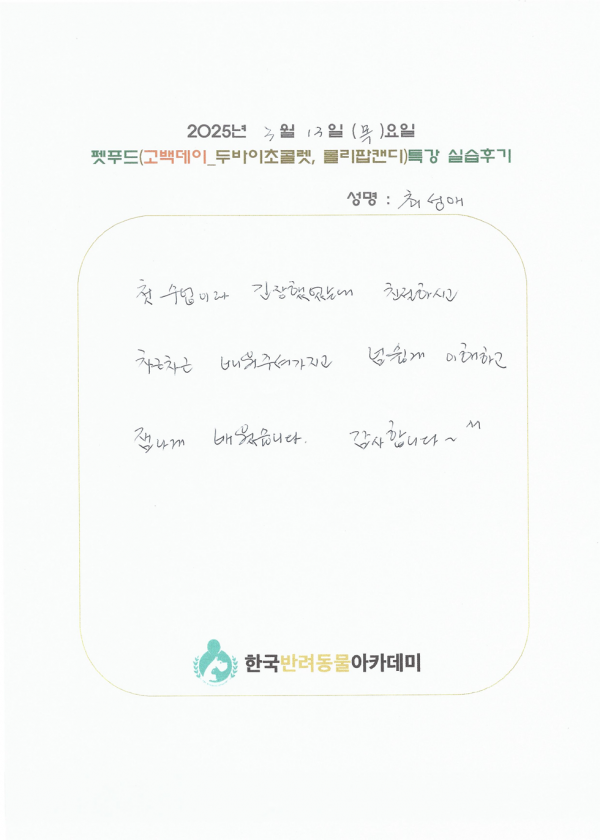 2025년 3월 13일 (목)요일
펫푸드(고백데이_두바이초콜렛, 롤리팝캔디)특강 실습후기
성명 : 최성애
첫 수업이라 긴장했었는데 친절하시고
차근차근 배워주셔가지고 넘 쉽게 이해하고
잼나게 배웠습니다. 감사합니다~ ^^
한국반려동물아카데미